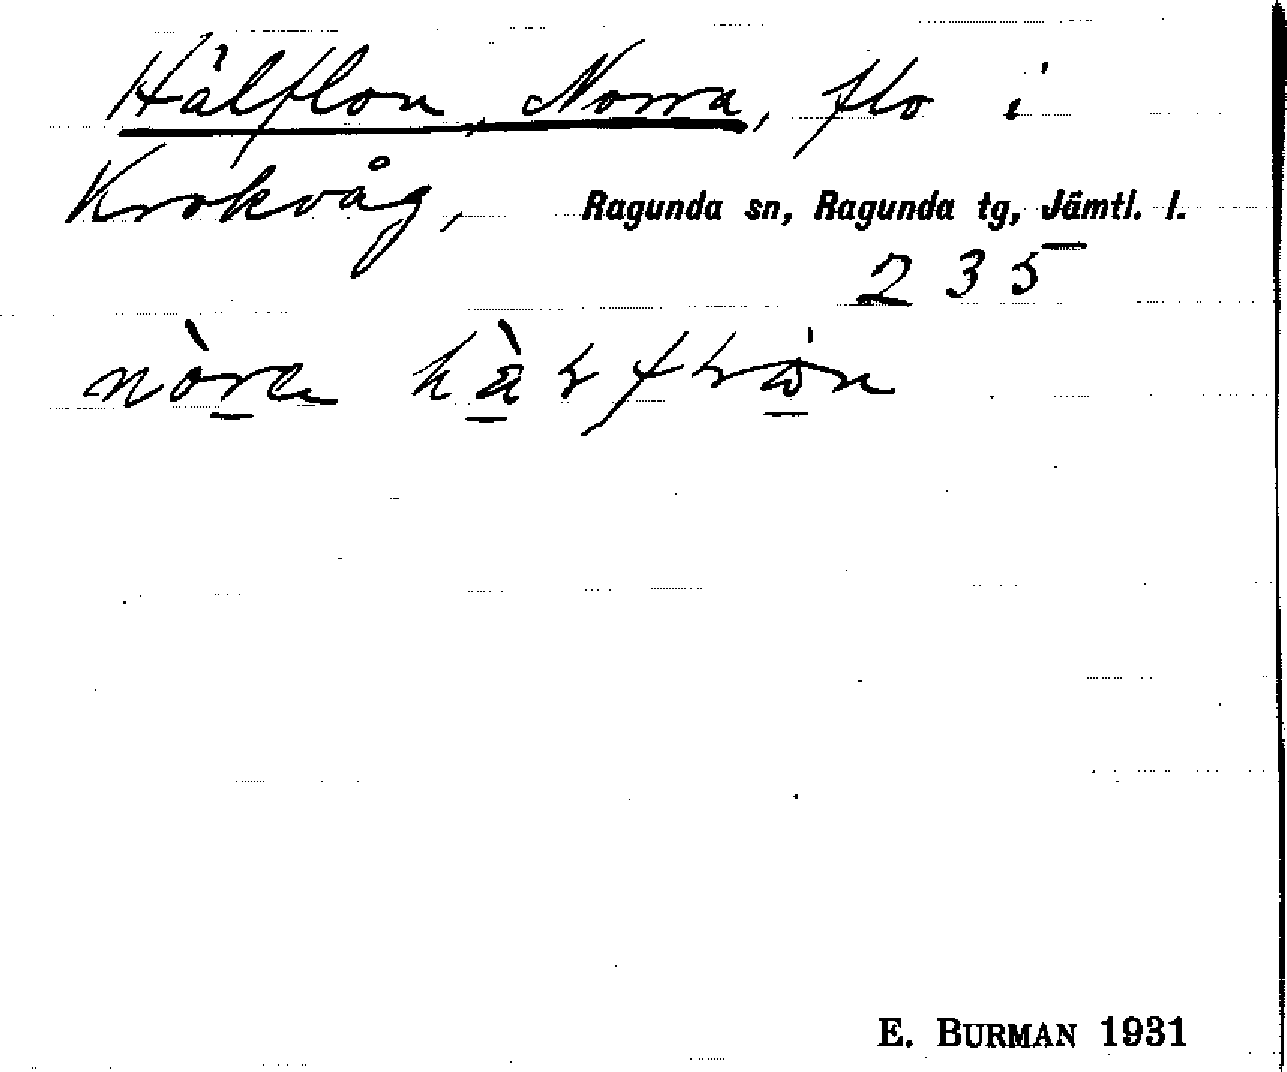 Hålflon, Norra, flo i
Krokvåg, Ragunda sn, Ragunda tg, Jämtl. l.
235
E. BURMAN 1931